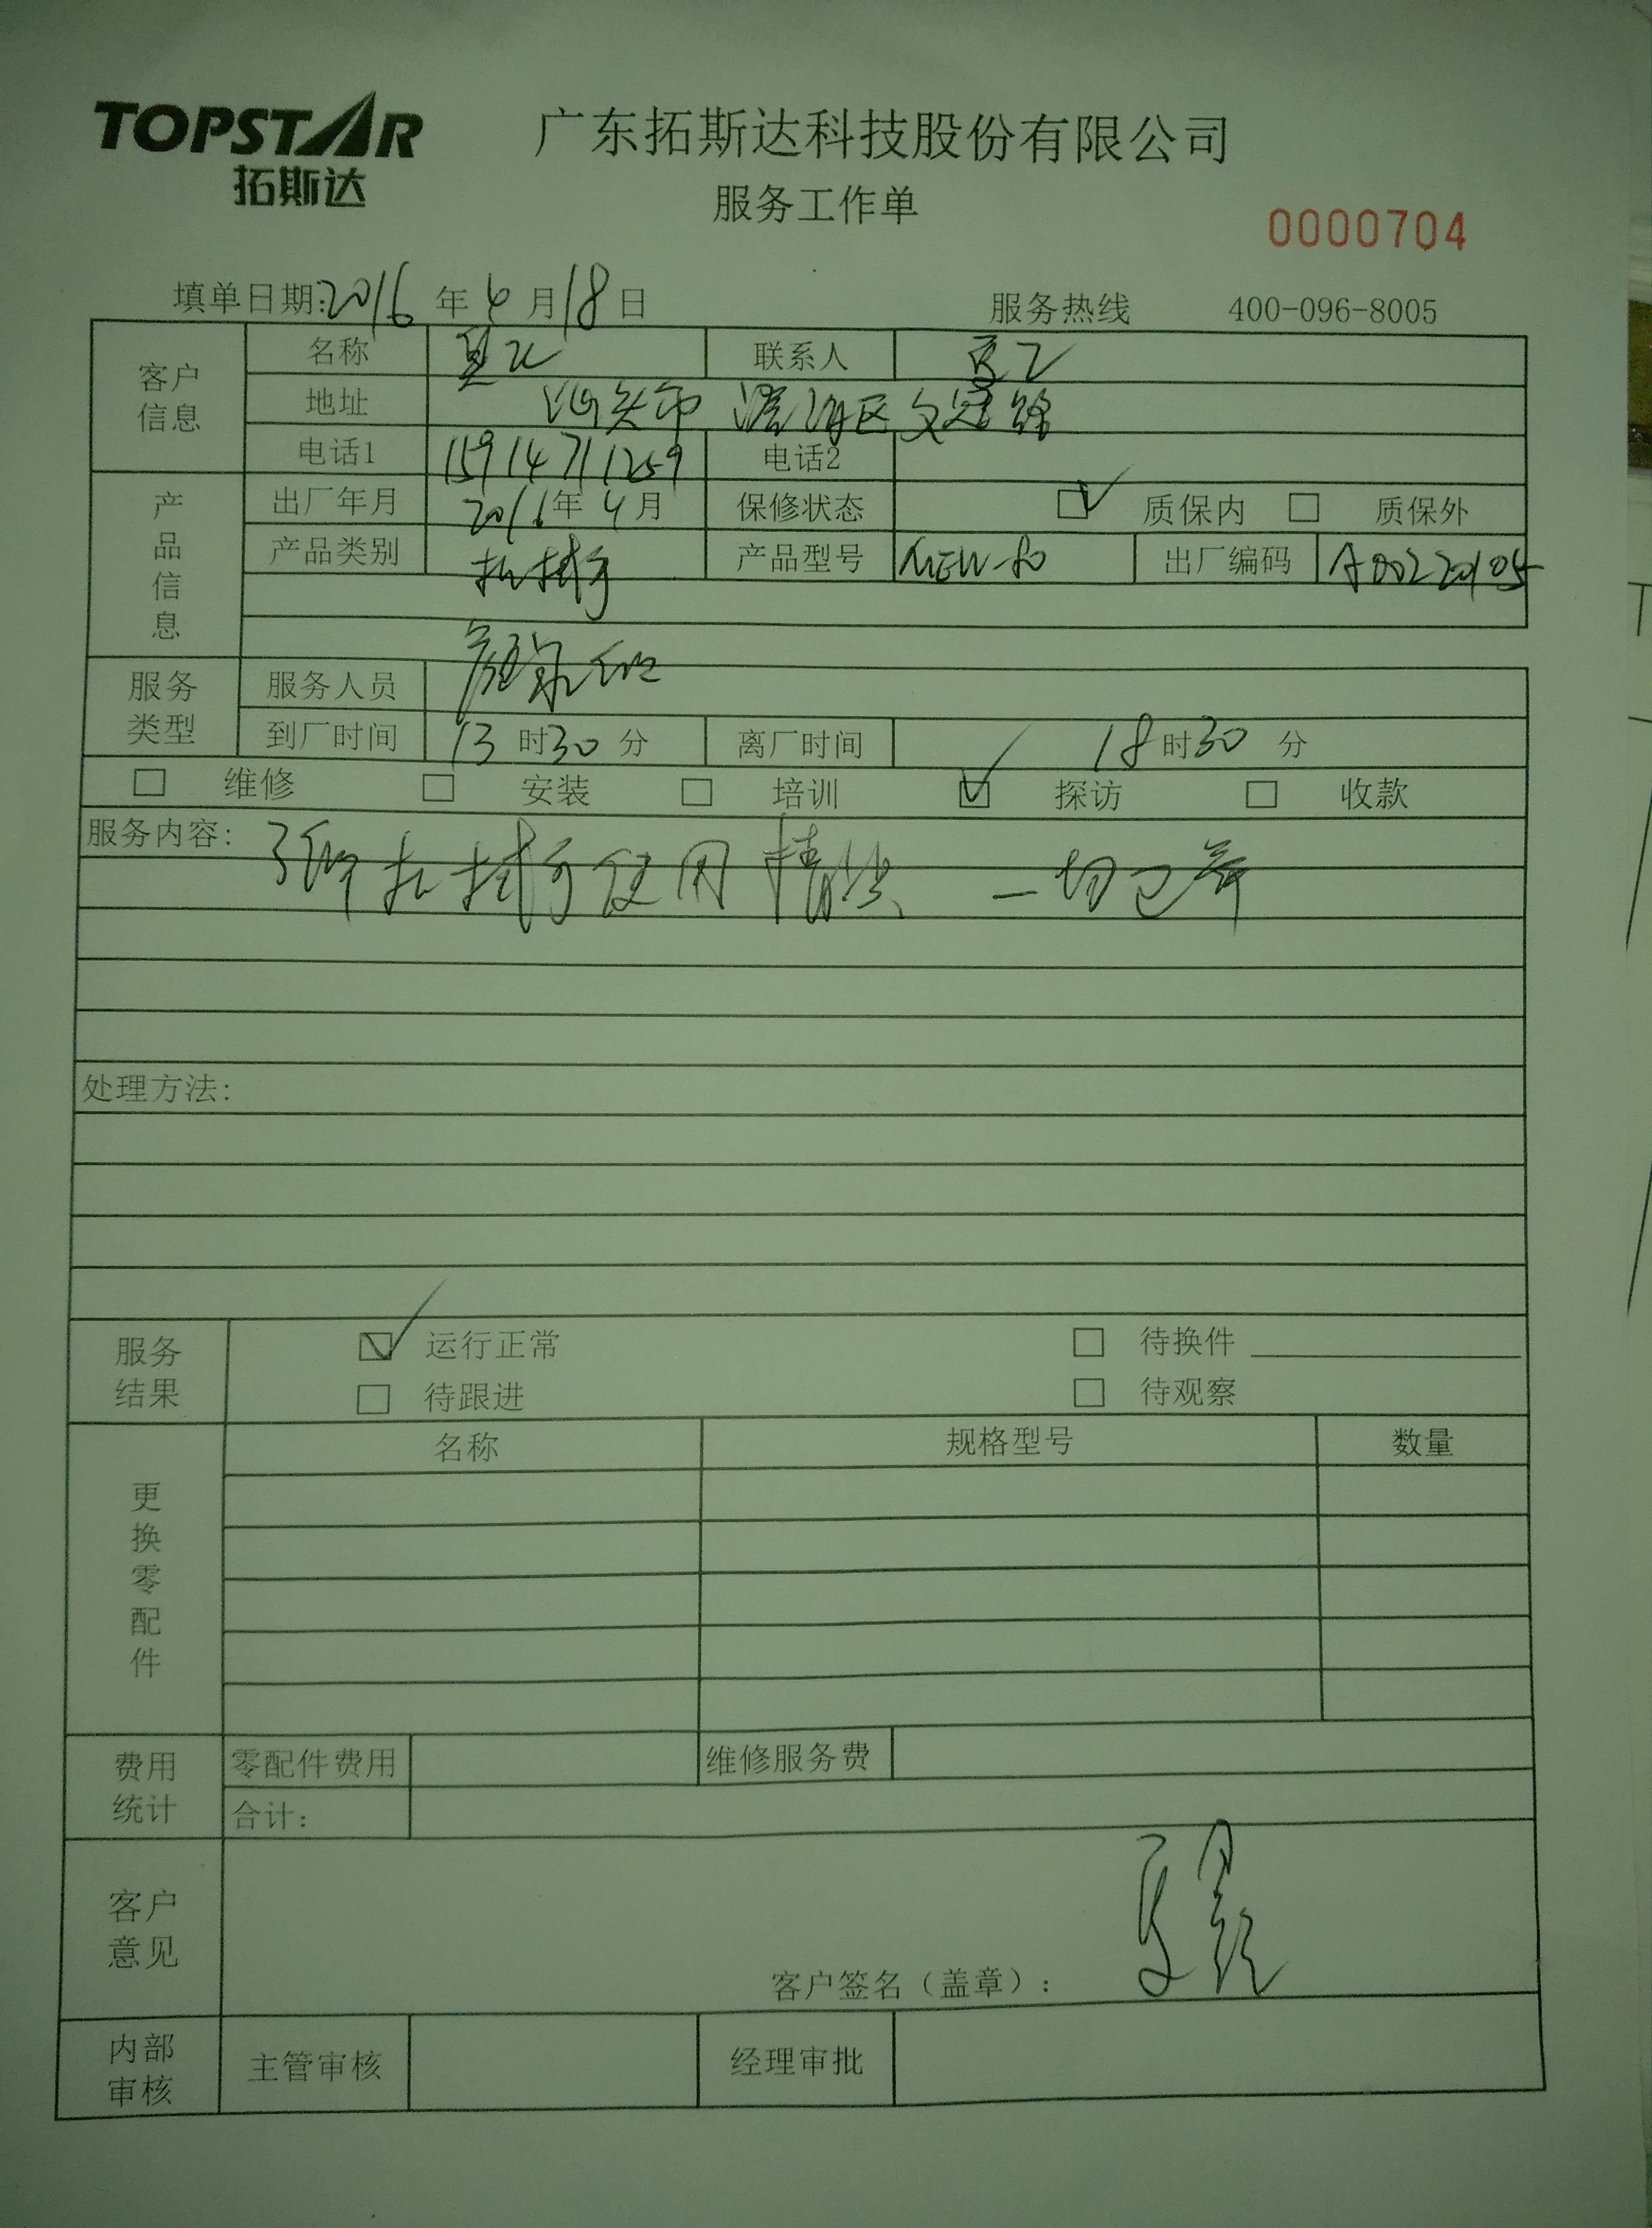 TOPSTAR
拓斯达
广东拓斯达科技股份有限公司
服务工作单
0000704
填单日期:2016 年 4 月 18 日 服务热线 400-096-8005
客户信息
名称 联系人
地址 汕头市 澄海区文冠路
电话1 15914711259 电话2
产品信息
出厂年月 2016年 4月 保修状态 质保内 质保外
产品类别 机械手 产品型号 出厂编码 A00220105
服务类型
服务人员
到厂时间 13 时30 分 离厂时间 18时30 分
维修 安装 培训 探访 收款
服务内容: 了解机械手使用情况 一切正常
处理方法:
服务结果
运行正常 待换件
待跟进 待观察
更换零配件
名称 规格型号 数量
费用统计
零配件费用 维修服务费
合计:
客户意见
客户签名(盖章):
内部审核
主管审核 经理审批